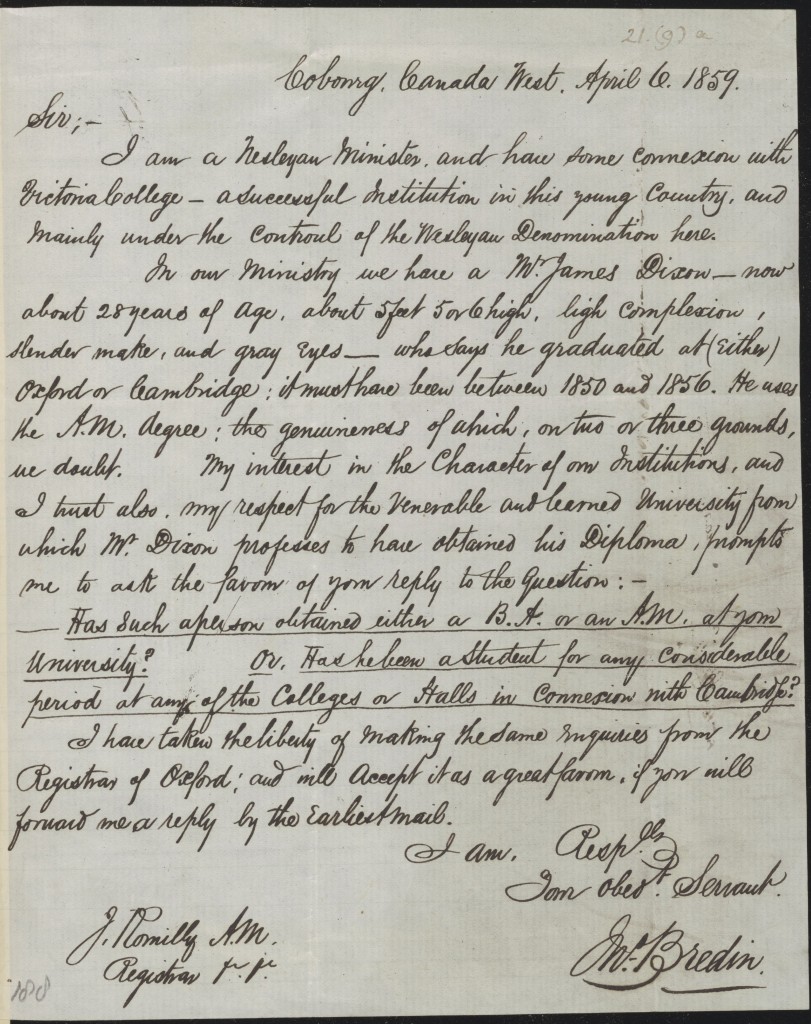 21.(9) a
Cobourg, Canada West, April 6. 1859.
Sir;-
I am a Wesleyan Minister, and have some connexion with
Victoria College – a successful Institution in this young Country, and
mainly under the controul of the Wesleyan Denomination here.
In our Ministry we have a Mr. James Dixon – now
about 28 years of Age, about 5 feet 5 or 6 high, ligh Complexion,
slender make, and gray Eyes – who says he graduated at (Either)
Oxford or Cambridge; it must have been between 1850 and 1856. He uses
the A.M. degree; the genuineness of which, on two or three grounds,
we doubt. My interest in the Character of our Institutions, and
I trust also, my respect for the Venerable and learned University from
which Mr. Dixon professes to have obtained his Diploma, prompts
me to ask the favour of your reply to the Question:-
– Has such a person obtained either a B.A. or an A.M. at your
University? Or, Has he been a Student for any considerable
period at any of the Colleges or Halls in Connexion with Cambridge?
I have taken the liberty of making the same Enquiries from the
Registrar of Oxford; and will Accept it as a great favour, if you will
forward me a reply by the Earliest mail.
I am, Resply
Your obedt. Servant.
Jno. Bredin.
J. Romilly A.M.
Registrar
188